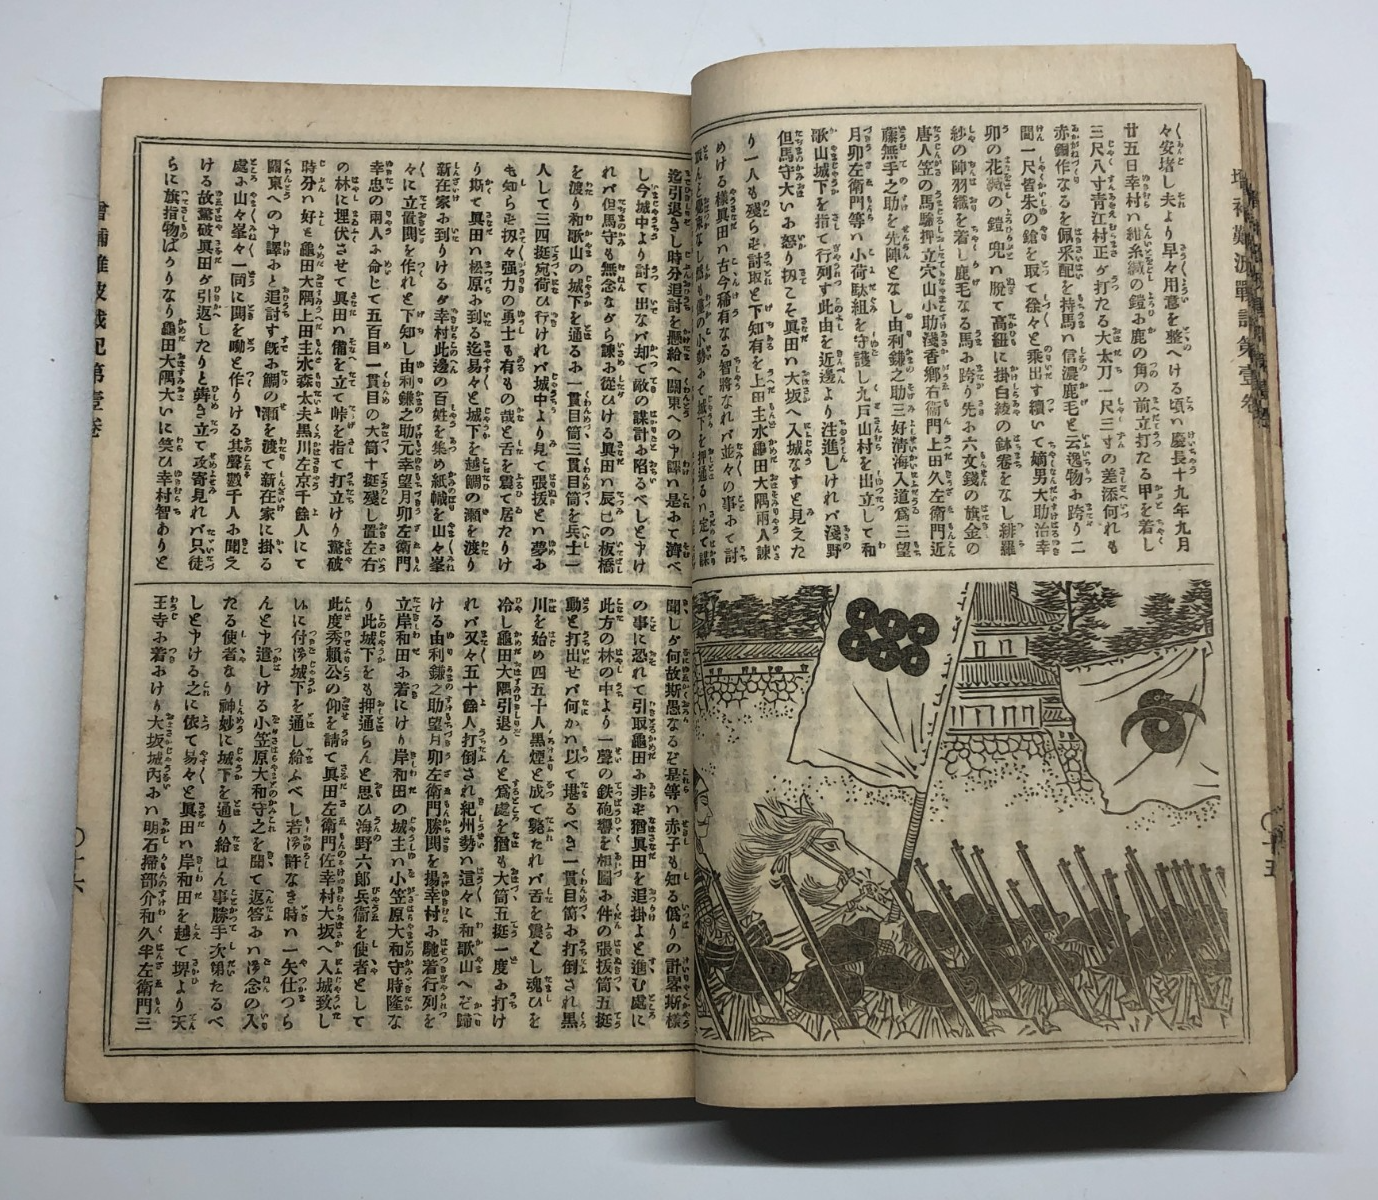 々安堵し夫より早々用意を整へける頃ハ慶長十九年九月
廿五日幸村ハ紺糸縅の鎧お鹿の角の前立打たる甲を着し
三尺八寸青江村正が打たる大太刀一尺三寸の差添何れも
赤銅作なるを佩釆配を持馬ハ信濃鹿毛と云逸物お跨り二
間一尺皆朱の鎗を取て徐々と乗出す續いて嫡男大助治幸
卯の花縅の鎧兜ハ脱て高紐に掛白綾の鉢卷をなし緋羅
紗の陣羽織を着し鹿毛なる馬お跨り先お六文錢の旗金の
唐人笠の馬驗押立穴山小助淺香郷右衞門上田久左衛門近
藤無手之助を先陣となし由利鎌之助三好清海入道爲三望
月卯左衛門等ハ小荷駄組を守護し九戸山村を出立して和
歌山城下を指て行列す此由を近邊より注進しけれバ淺野
但馬守大いお怒り扨こそ眞田ハ大坂へ入城なすと見えた
り一人も殘らず討取と下知有を上田主水龜田大隅兩人諫
めける樣眞田ハ古今稀有なる智將なれバ並々の事おて討
迄引退きし時分追討を懸給へ關東への申譯ハ是おて濟べ
し今城中より討て出なバ却て敵の謀計お陷るべしと申け
れバ但馬守も無念ながら諫お從ひける眞田ハ辰巳の板橋
を渡り和歌山の城下を通るお一貫目筒三貫目筒を兵士一
人して三四挺宛荷ひ行けれバ城中より見て張拔とハ夢お
も知らず扨々强力の勇士も有もの哉と舌を震て居たりけ
り斯て眞田ハ松原お到る迄易々と城下を越鯛の瀬を渡り
新在家お到りけるが幸村此邊の百姓を集め紙幟を山々峯
々に立置鬨を作れと下知し由利鎌之助元幸望月卯左衛門
幸忠の兩人お命じて五百目一貫目の大筒十挺殘し置左右
の林に埋伏させて眞田ハ備を立て峠を指て打立けり驚破
時分ハ好と龜田大隅上田主水森太夫黒川左京千餘人にて
關東への申譯おと追討す旣お鯛の瀬を渡て新在家に掛る
處お山々峯々一同に鬨を噇と作りける其聲數千人お聞え
ける故驚破眞田が引返したりと犇き立て攻寄見れバ只徒
らに旗指物ばかりなり龜田大隅大いに笑ひ幸村智ありと
聞しが何故斯愚なるぞ是等ハ赤子も知る僞りの計畧斯樣
の事に恐れて引取龜田お非ず猶眞田を追掛よと進む處に
此方の林の中より一聲の鉄砲響を相圖お件の張拔筒五挺
動と打出せバ何かハ以て堪るべき一貫目筒お打倒され黒
川を始め四五十人黒煙と成て斃たれバ舌を震し魂ひを
冷し龜田大隅引退かんと爲處を猶も大筒五挺一度お打け
れバ又々五十餘人打倒され紀州勢ハ這々に和歌山へぞ歸
ける由利鎌之助望月卯左衛門勝鬨を揚幸村お馳着行列を
立岸和田お着にけり岸和田の城主ハ小笠原大和守時隆な
り此城下をも押通らんと思ひ海野六郎兵衞を使者として
此度秀頼公の仰を請て眞田左衛門佐幸村大坂へ入城致し
いに付御城下を通し給ふべし若御許なき時ハ一矢仕つら
んと申遣しける小笠原大和守之を聞て返答おハ御念の入
たる使者なり神妙に城下を通り給はん事勝手次第たるべ
しと申ける之に依て易々と眞田ハ岸和田を越て堺より天
王寺お着おけり大坂城内おハ明石掃部介和久半左衛門三